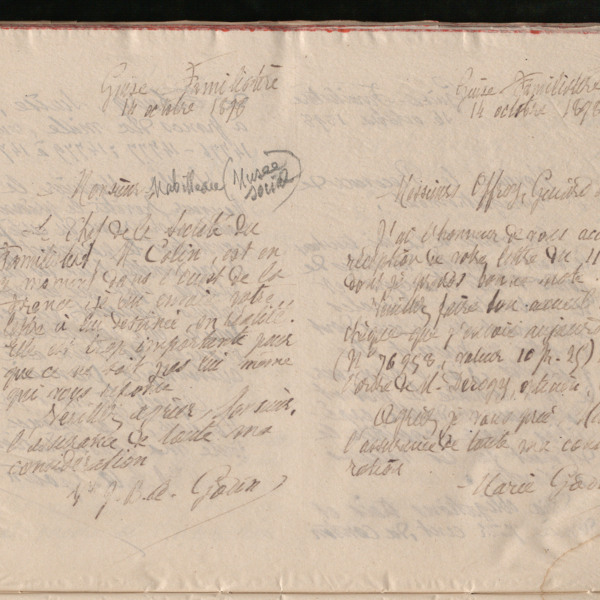 Guise Familistère
14 octobre 1898
Monsieur Mabilleau (Musée
social)
Le Chef de la Société du
Familistère, M. Colin, est en
ce moment dans l'ouest de la
France. Je lui envoie votre
lettre à lui destinée, en réalité.
Elle est trop importante pour
que ce ne soit pas lui même
qui vous réponde.
Veuillez agréer, Monsieur,
l'assurance de toute ma
considération
Vve J. B. A. Godin
Guise Familistère
14 octobre 189
Messieurs Offroy, Guiard
J'ai l'honneur de vous acc
réception de votre lettre du 11
dont je prends bonne note.
Veuillez faire bon accueil
chèque que j'envoie aujourd
(N° 76958, valeur 10 fr. 25)
l'ordre de M.
Agréez, je vous prie, M
l'assurance de toute ma cons
ration
Marie God